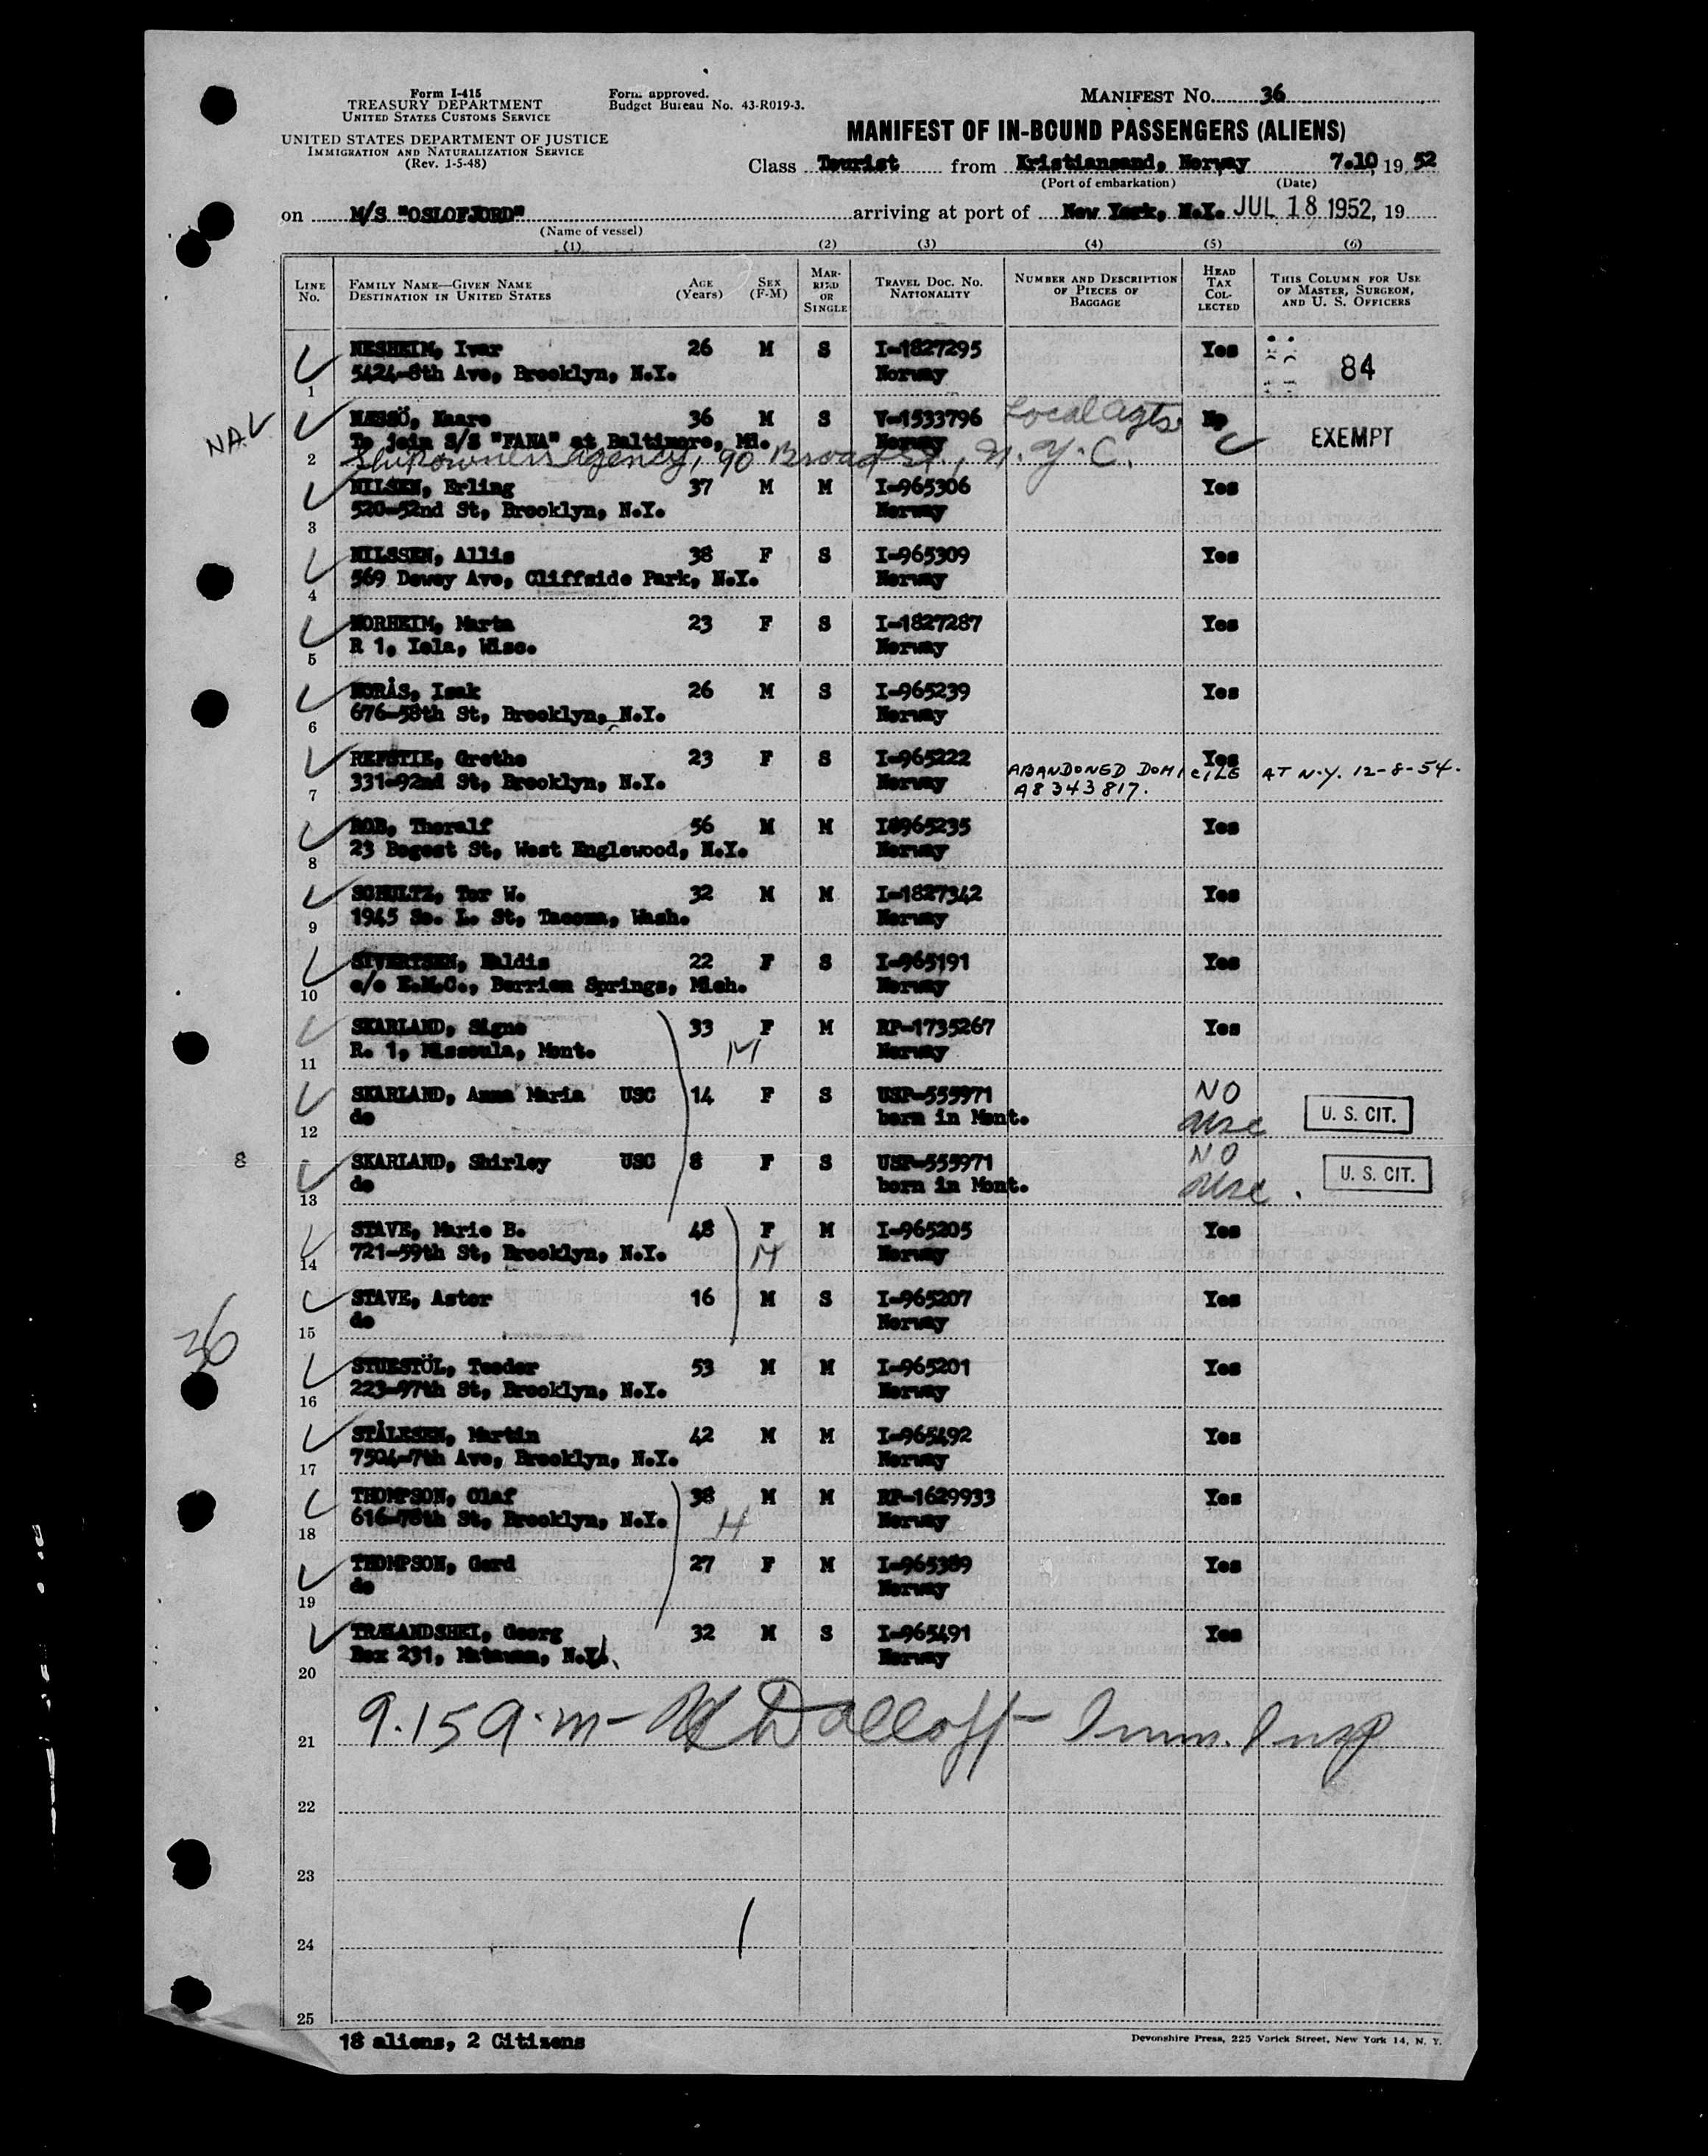 Form I-415
TREASURY DEPARTMENT
UNITED STATES CUSTOMS SERVICE
UNITED STATES DEPARTMENT OF JUSTICE
IMMIGRATION AND NATURALIZATION SERVICE
(Rev. 1-5-48)
Form approved.
Budget Bureau No. 43-R019-3.
MANIFEST NO. 36
MANIFEST OF IN-BOUND PASSENGERS (ALIENS)
Class Tourist from Kristiansand, Norway 7.10, 19 52
(Port of embarkation) (Date)
on M/S "OSLOFJORD" arriving at port of New York, N.Y. JUL 18 1952, 19
(Name of vessel)
(1) (2) (3) (4) (5) (6)
LINE NO. FAMILY NAME—GIVEN NAME DESTINATION IN UNITED STATES AGE (Years) SEX (F-M) MARRIED OR SINGLE TRAVEL DOC. NO. NATIONALITY NUMBER AND DESCRIPTION OF PIECES OF BAGGAGE HEAD TAX COLLECTED THIS COLUMN FOR USE OF MASTER, SURGEON, AND U. S. OFFICERS
NESHEIM, Ivar 26 M S I-1827295 Yes 84
1 5424-8th Ave, Brooklyn, N.Y. Norway
NAV NÆSSÖ, Kaare 36 M S V-1533796 Local Agts. No EXEMPT
To join S/S "FANA" at Baltimore, Md. Norway
2 Shipowners Agency, 90 Broad St., N.Y.C.
NILSEN, Erling 37 M M I-965306 Yes
3 520-52nd St, Brooklyn, N.Y. Norway
NILSSEN, Allis 38 F S I-965309 Yes
4 569 Dewey Ave, Cliffside Park, N.Y. Norway
NORHEIM, Marta 23 F S I-1827287 Yes
5 R 1, Iola, Wisc. Norway
NORÅS, Isak 26 M S I-965239 Yes
6 676-58th St, Brooklyn, N.Y. Norway
REFSTIE, Grethe 23 F S I-965222 Yes
7 331-92nd St, Brooklyn, N.Y. Norway ABANDONED DOMICILE AT N.Y. 12-8-54.
A8 343 817.
ROB, Thoralf 56 M M I8965235 Yes
8 23 Bogest St, West Englewood, N.Y. Norway
SCHULTZ, Tor W. 32 M M I-1827342 Yes
9 1945 So. L. St, Tacoma, Wash. Norway
SIVERTSEN, Haldis 22 F S I-965191 Yes
10 c/o E.M.C., Berrien Springs, Mich. Norway
SKARLAND, Signe 33 F M RP-1735267 Yes
11 R. 1, Missoula, Mont. M Norway
SKARLAND, Anna Maria USC 14 F S USP-555971 NO U. S. CIT.
12 do born in Mont. usc
8 SKARLAND, Shirley USC 8 F S USP-555971 NO U. S. CIT.
13 do born in Mont. usc.
STAVE, Marie B. 48 F M I-965205 Yes
14 721-59th St, Brooklyn, N.Y. H Norway
STAVE, Astor 16 M S I-965207 Yes
15 do Norway
36
STUESTÖL, Teodor 53 M M I-965201 Yes
16 223-97th St, Brooklyn, N.Y. Norway
STÅLESEN, Martin 42 M M I-965492 Yes
17 7504-7th Ave, Brooklyn, N.Y. Norway
THOMPSON, Olaf 38 M M RP-1629933 Yes
18 616-78th St, Brooklyn, N.Y. H Norway
THOMPSON, Gerd 27 F M I-965389 Yes
19 do Norway
TRÆLANDSHEI, Georg 32 M S I-965491 Yes
20 Box 231, Matawan, N.J. Norway
21 9.15 a.m- Dalloff - Imm. Insp
22
23
24
25
18 aliens, 2 Citizens
Devonshire Press, 225 Varick Street, New York 14, N. Y.